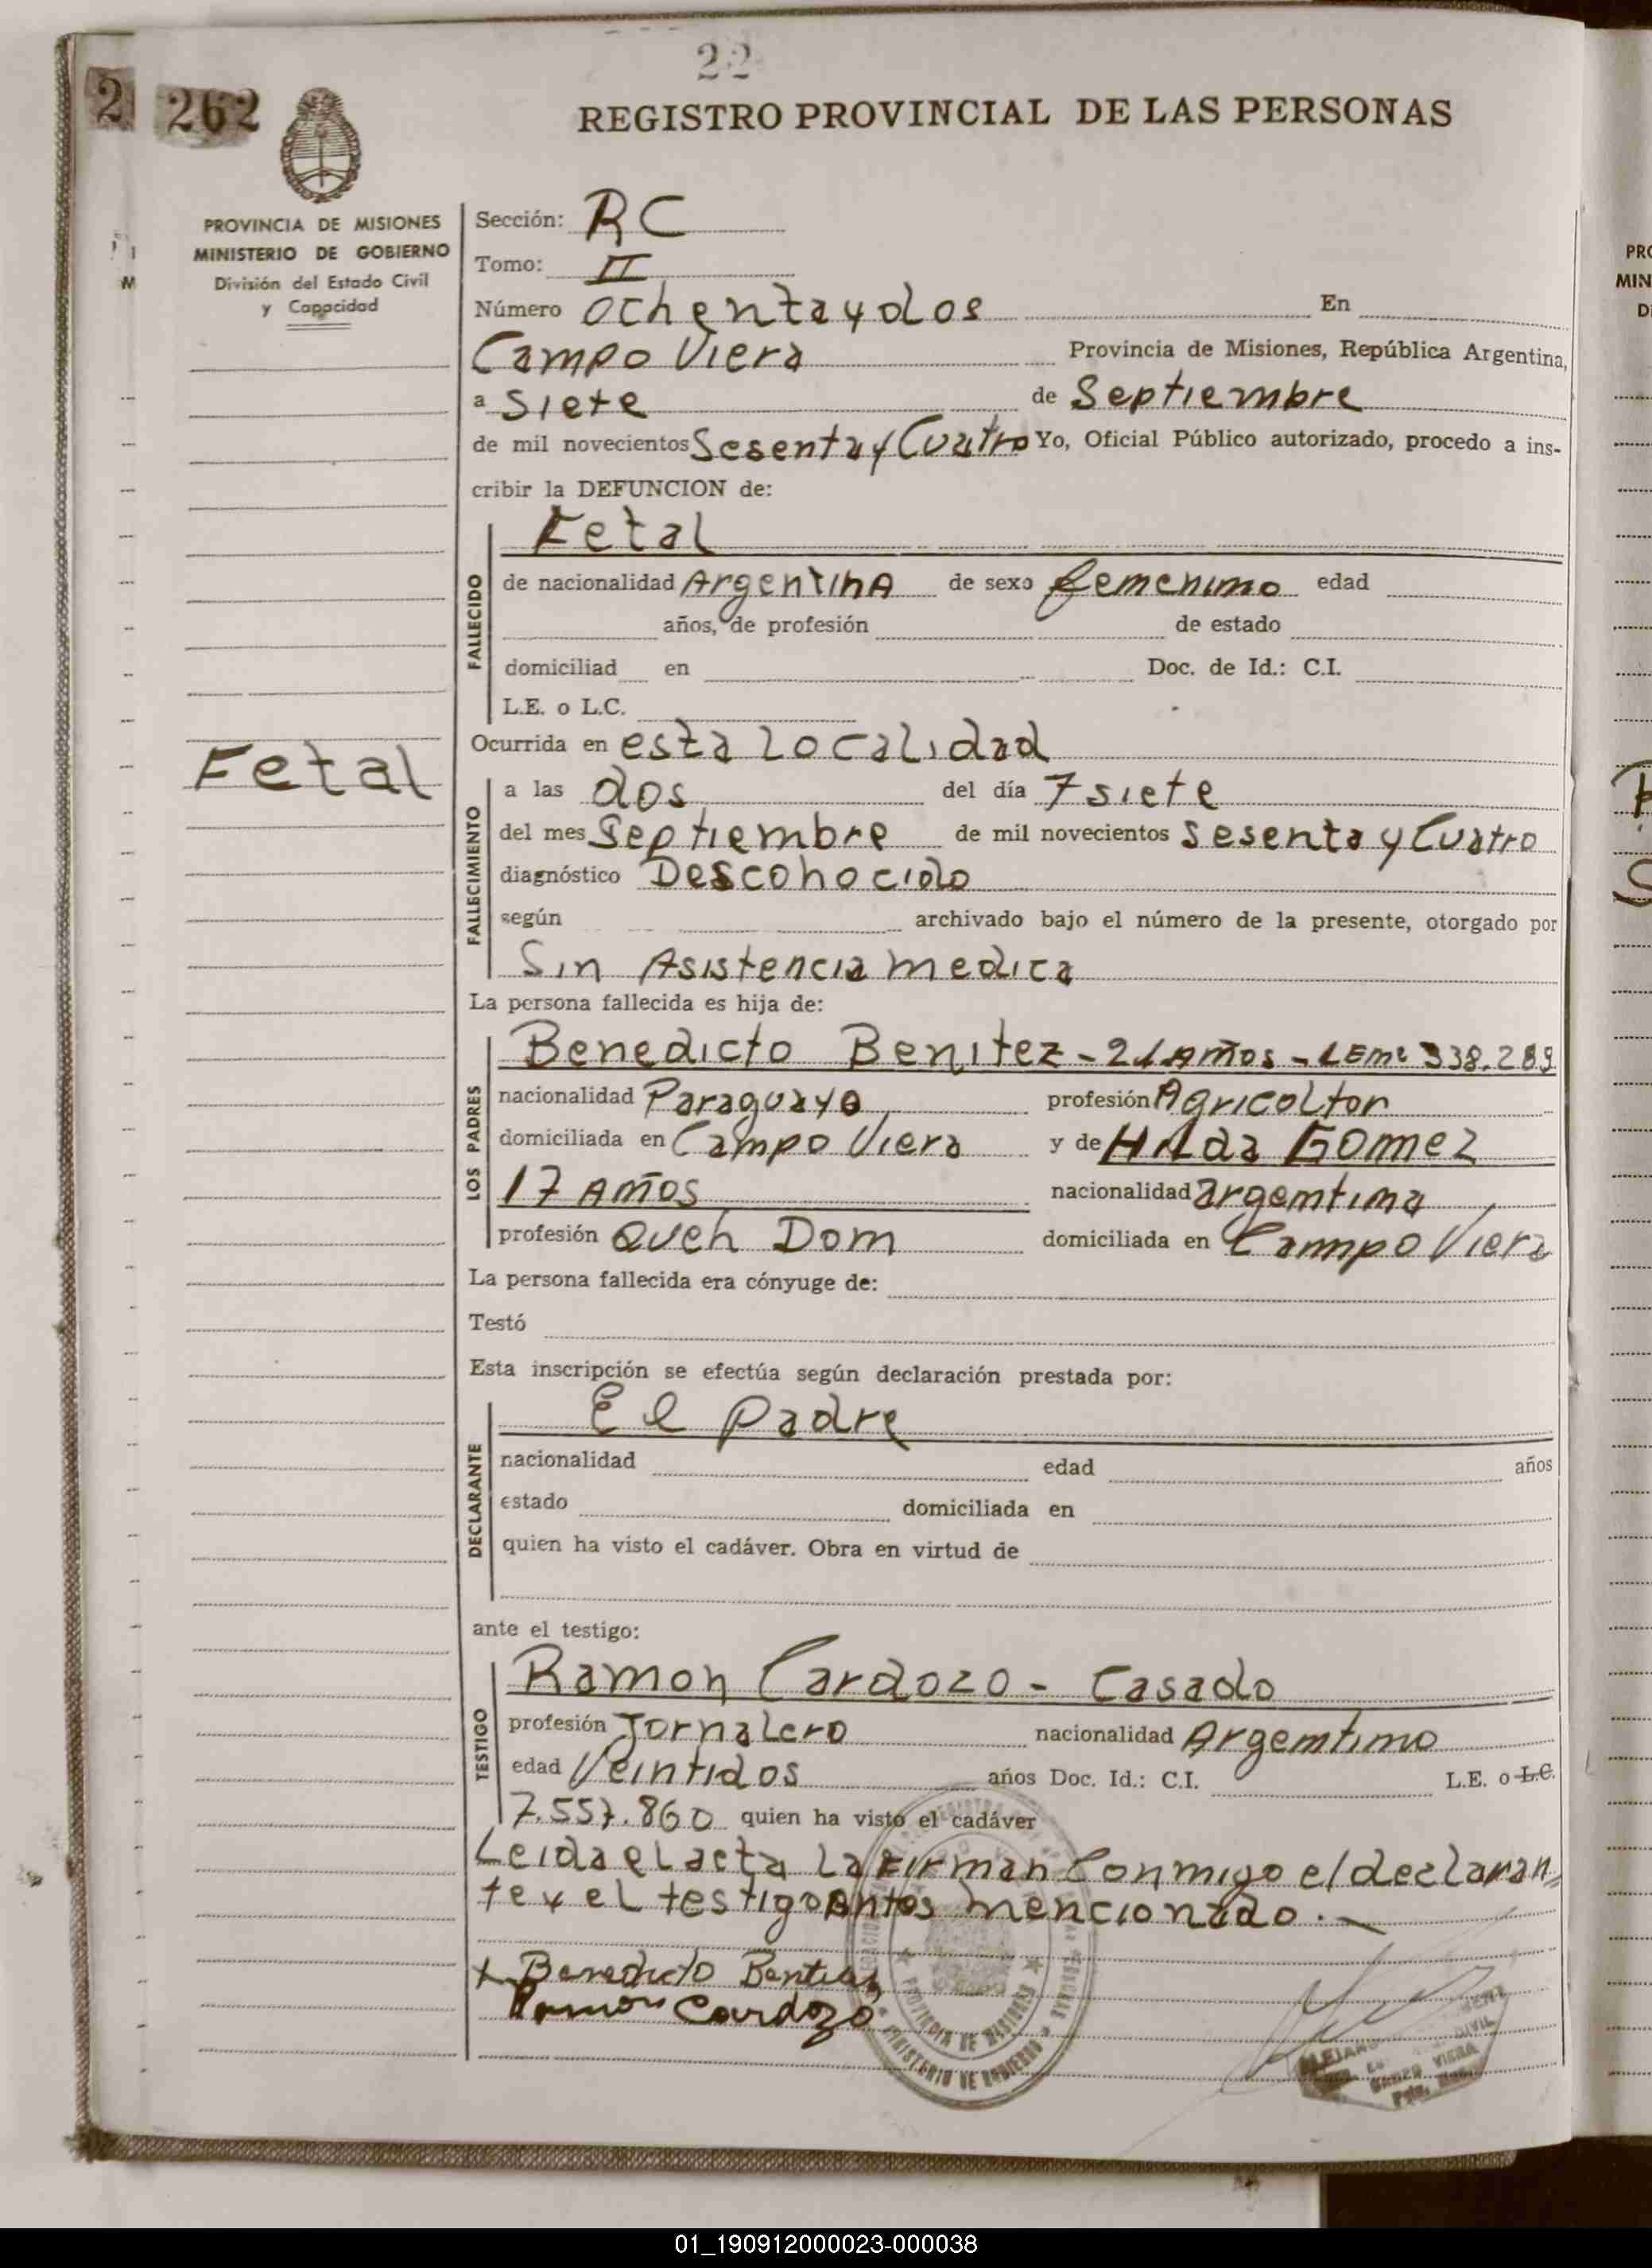 22
2 262
REGISTRO PROVINCIAL DE LAS PERSONAS
PROVINCIA DE MISIONES
MINISTERIO DE GOBIERNO
División del Estado Civil
y Capacidad
Sección: RC
Tomo: II
Número ochentaydos En
Campo Viera Provincia de Misiones, República Argentina,
a Siete de Septiembre
de mil novecientos Sesenta y Cuatro Yo, Oficial Público autorizado, procedo a ins-
cribir la DEFUNCION de:
FALLECIDO
Fetal
de nacionalidad ArgentinA de sexo femenimo edad
años, de profesión de estado
domiciliad en Doc. de Id.: C.I.
L.E. o L.C.
Ocurrida en esta localidad
Fetal
FALLECIMIENTO
a las dos del día 7 siete
del mes Septiembre de mil novecientos sesenta y Cuatro
diagnóstico Desconocido
según archivado bajo el número de la presente, otorgado por
Sin Asistencia medica
La persona fallecida es hija de:
LOS PADRES
Benedicto Benitez - 21 Años - 338.289
nacionalidad Paraguayo profesión Agricoltor
domiciliada en Campo Viera y de Hilda Gomez
17 Años nacionalidad argemtima
profesión Queh Dom domiciliada en Campo Viera
La persona fallecida era cónyuge de:
Testó
Esta inscripción se efectúa según declaración prestada por:
DECLARANTE
El padre
nacionalidad edad años
estado domiciliada en
quien ha visto el cadáver. Obra en virtud de
ante el testigo:
TESTIGO
Ramon Cardozo - Casado
profesión Jornalero nacionalidad Argemtimo
edad Veintidos años Doc. Id.: C.I. L.E. o L.C.
7.557.860 quien ha visto el cadáver
Leida el acta la firman Conmigo el declaran=
te y el testigo Antes mencionado.-
x Benedicto
Ramon Cardozo
PROVINCIA DE MISIONES
MINISTERIO DE GOBIERNO
CAMPO VIERA
01_190912000023-000038